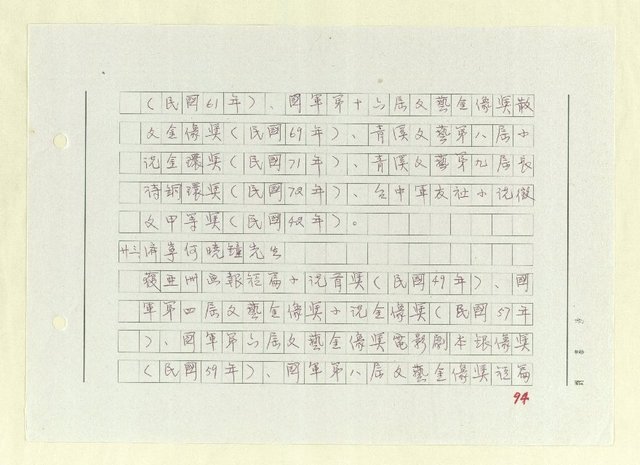 (民國61年)、國軍第十六屆文藝金像獎散
文金像獎(民國69年)、青溪文藝第八屆小
說金環獎(民國71年)、青溪文藝第九屆長
詩銅環獎(民國72年)、台中軍友社小說徵
文甲等獎(民國48年)。
廿三 何曉鐘先生
獲亞洲画報短篇小說首獎(民國49年)、國
軍第四屆文藝金像獎小說金像獎(民國57年
)、國軍第六屆文藝金像獎電影劇本銀像獎
(民國59年)、國軍第八屆文藝金像獎短篇
94